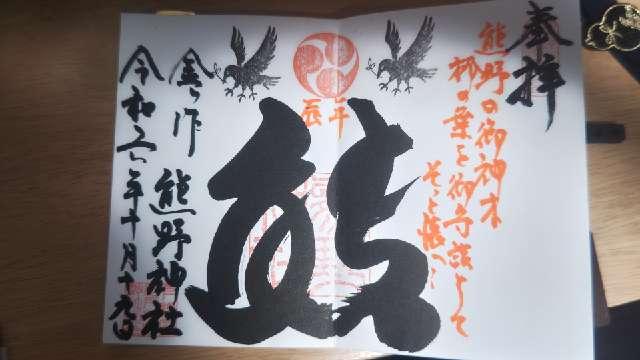 奉拝
熊野の御神木
梛の葉を御守護として
そっと懐へ…
辰年
熊
金ヶ作 熊野神社
令和六年十月十九日